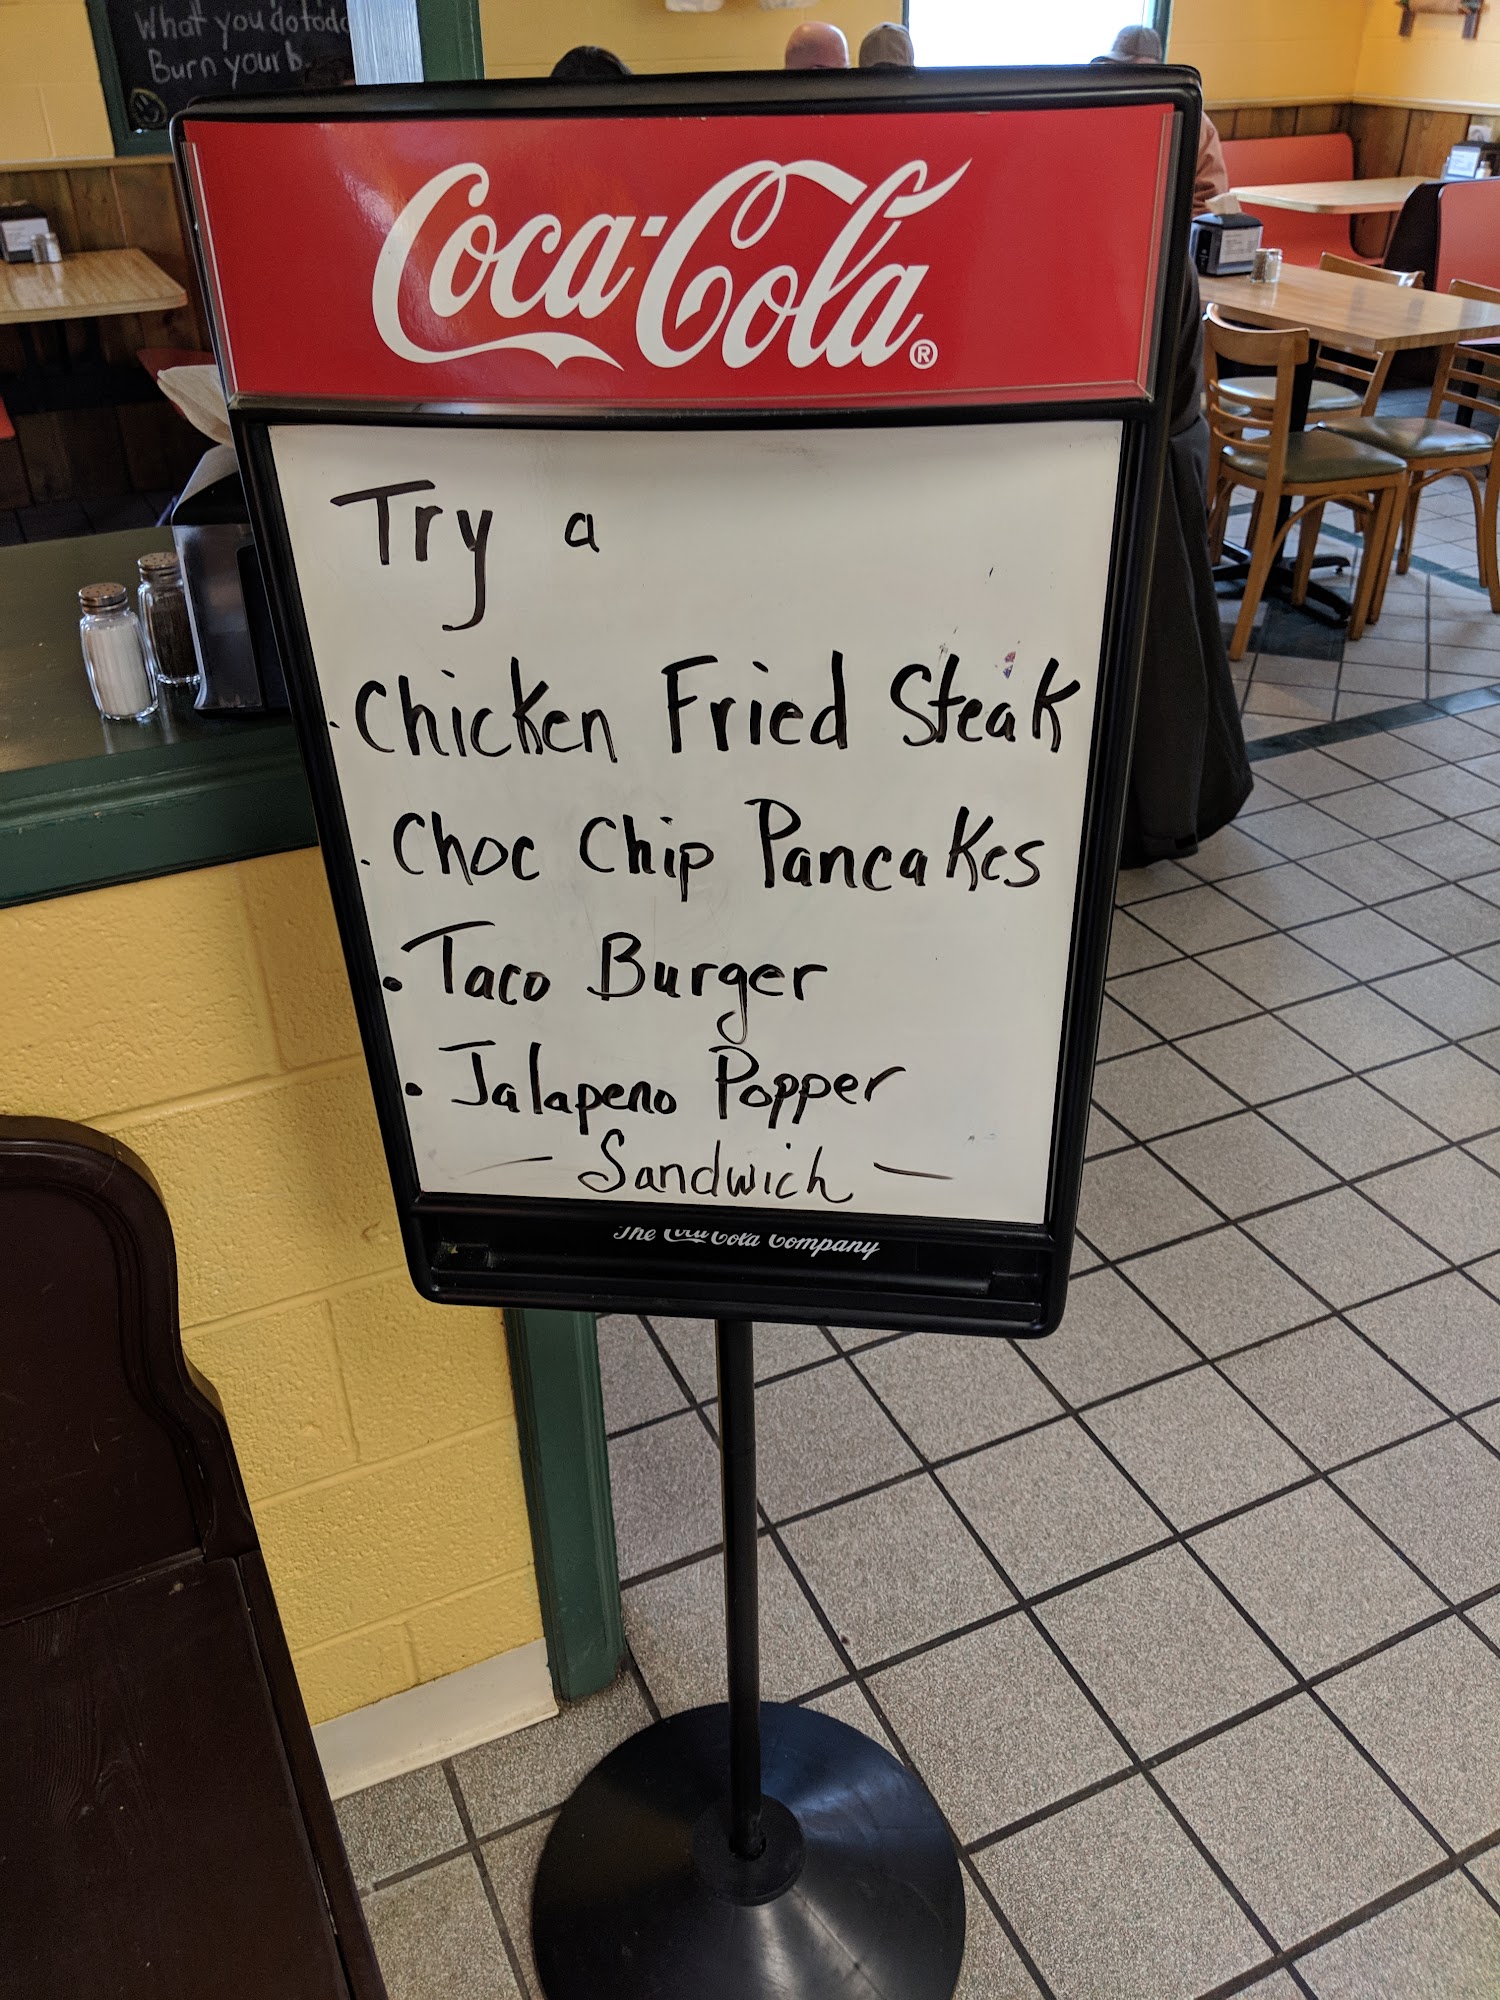 What you do toda
Burn your b
Coca-Cola®
Try a
· Chicken Fried Steak
· Choc Chip Pancakes
• Taco Burger
• Jalapeno Popper
— Sandwich —
The Coca-Cola Company